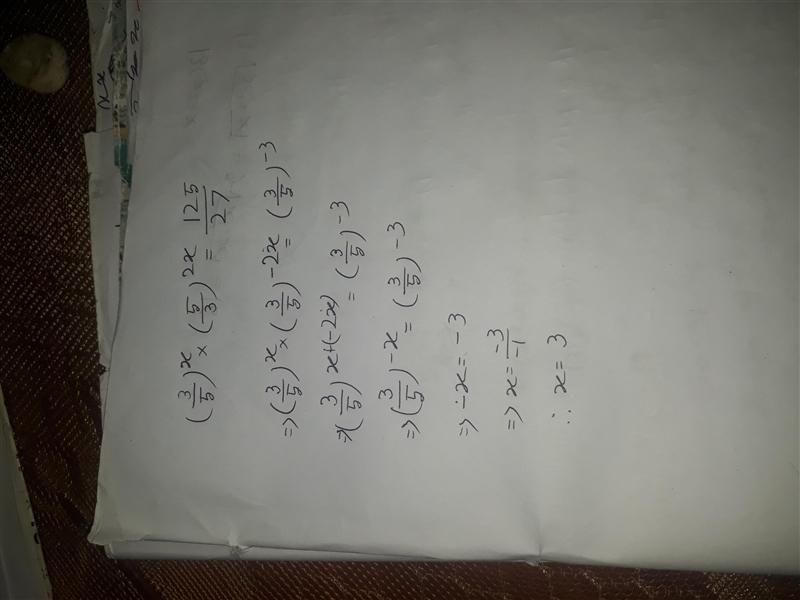 (3/5)^x × (5/3)^2x = 125/27
=> (3/5)^x × (3/5)^-2x = (3/5)^-3
=> (3/5)^x+(-2x) = (3/5)^-3
=> (3/5)^-x = (3/5)^-3
=> -x = -3
=> x = -3/-1
∴ x = 3